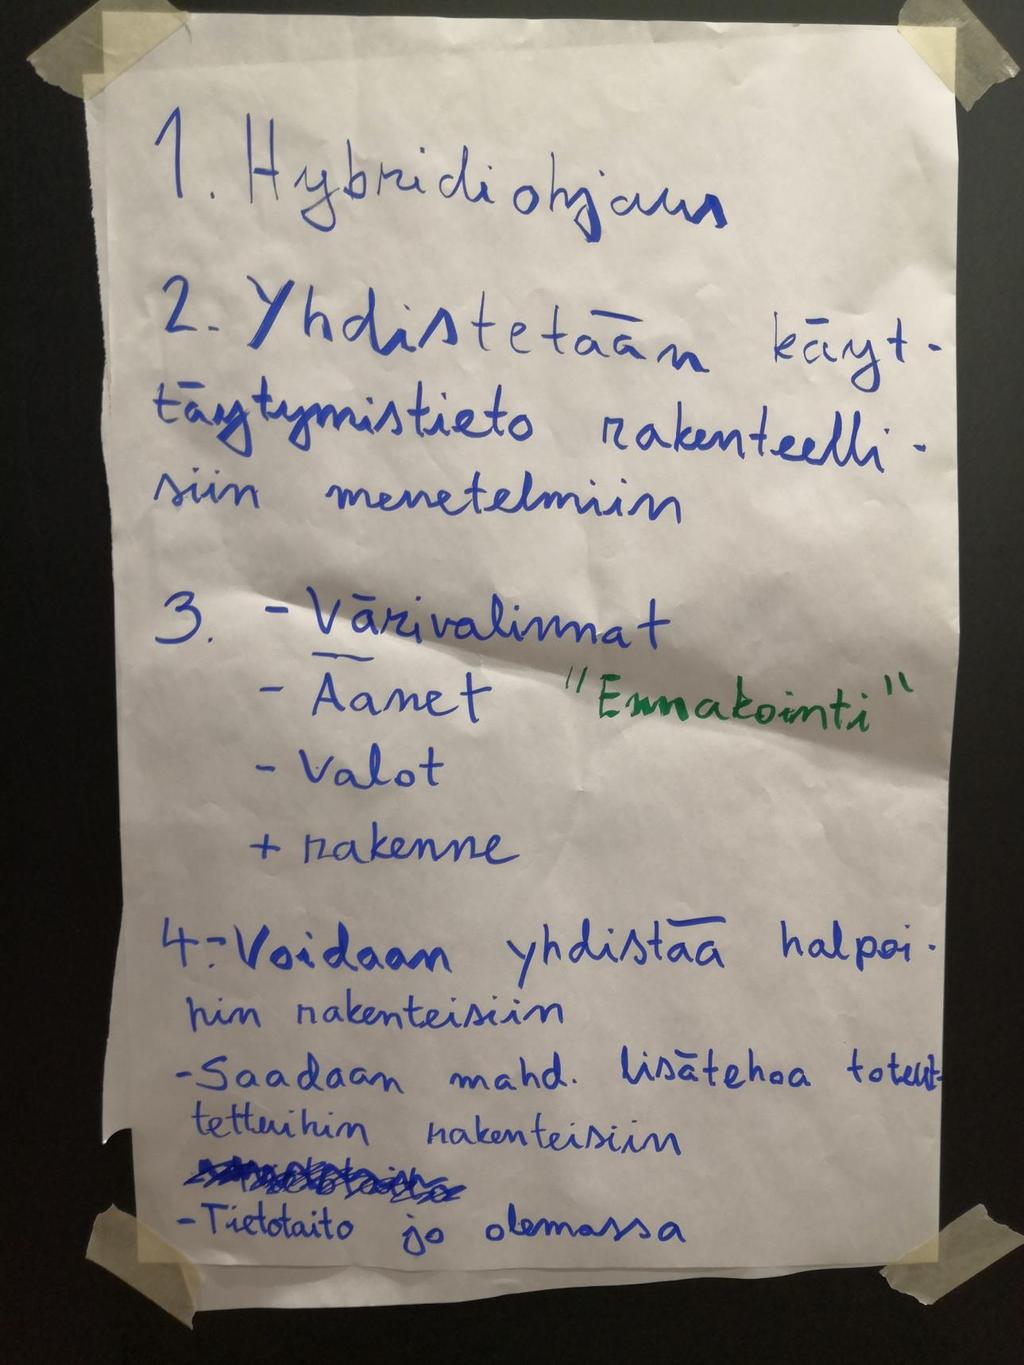 1. Hybridiohjaus
2. Yhdistetään käyt-
täytymistieto rakenteelli-
siin menetelmiin
3. - Värivalinnat
- Äänet "Ennakointi"
- Valot
+ rakenne
4. - Voidaan yhdistää halpoi-
hin rakenteisiin
- Saadaan mahd. lisätehoa toteut-
tettuihin rakenteisiin
- Tietotaito jo olemassa